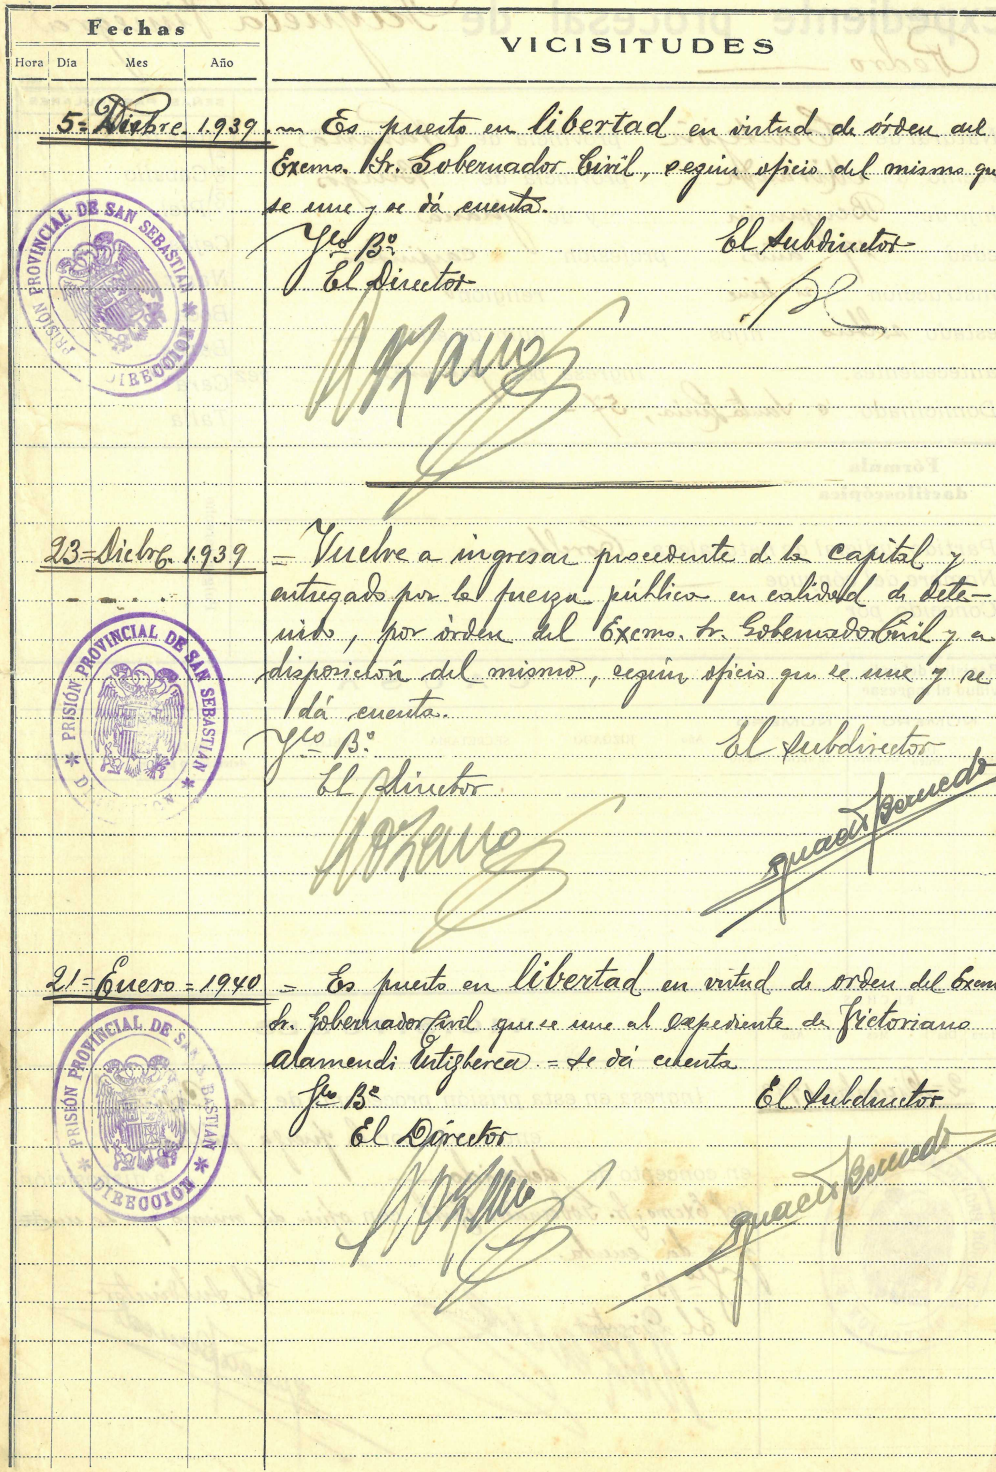 Fechas
VICISITUDES
Hora Día Mes Año
5= Dicbre. 1.939 .= Es puesto en libertad en virtud de órden del
Excmo. Sr. Gobernador Civil, según oficio del mismo que
se une y se dá cuenta.
Vto Bº El Subdirector
El Director
Lozano
PRISIÓN PROVINCIAL DE SAN SEBASTIAN
DIRECCION
23= Dicbre. 1.939 = Vuelve a ingresar procedente de la capital y
entregado por la fuerza pública en calidad de dete-
nido, por órden del Excmo. Sr. Gobernador Civil y a
disposición del mismo, según oficio que se une y se
dá cuenta.
Vto Bº El Subdirector
El Director
Lozano
Bernedo
PRISIÓN PROVINCIAL DE SAN SEBASTIAN
21= Enero = 1940 = Es puesto en libertad en virtud de orden del Excmo
Sr. Gobernador Civil que se une al expediente de Victoriano
= Se dá cuenta
Vto Bº El Subdirector
El Director
Lozano
Bernedo
PRISIÓN PROVINCIAL DE SAN SEBASTIAN
DIRECCION